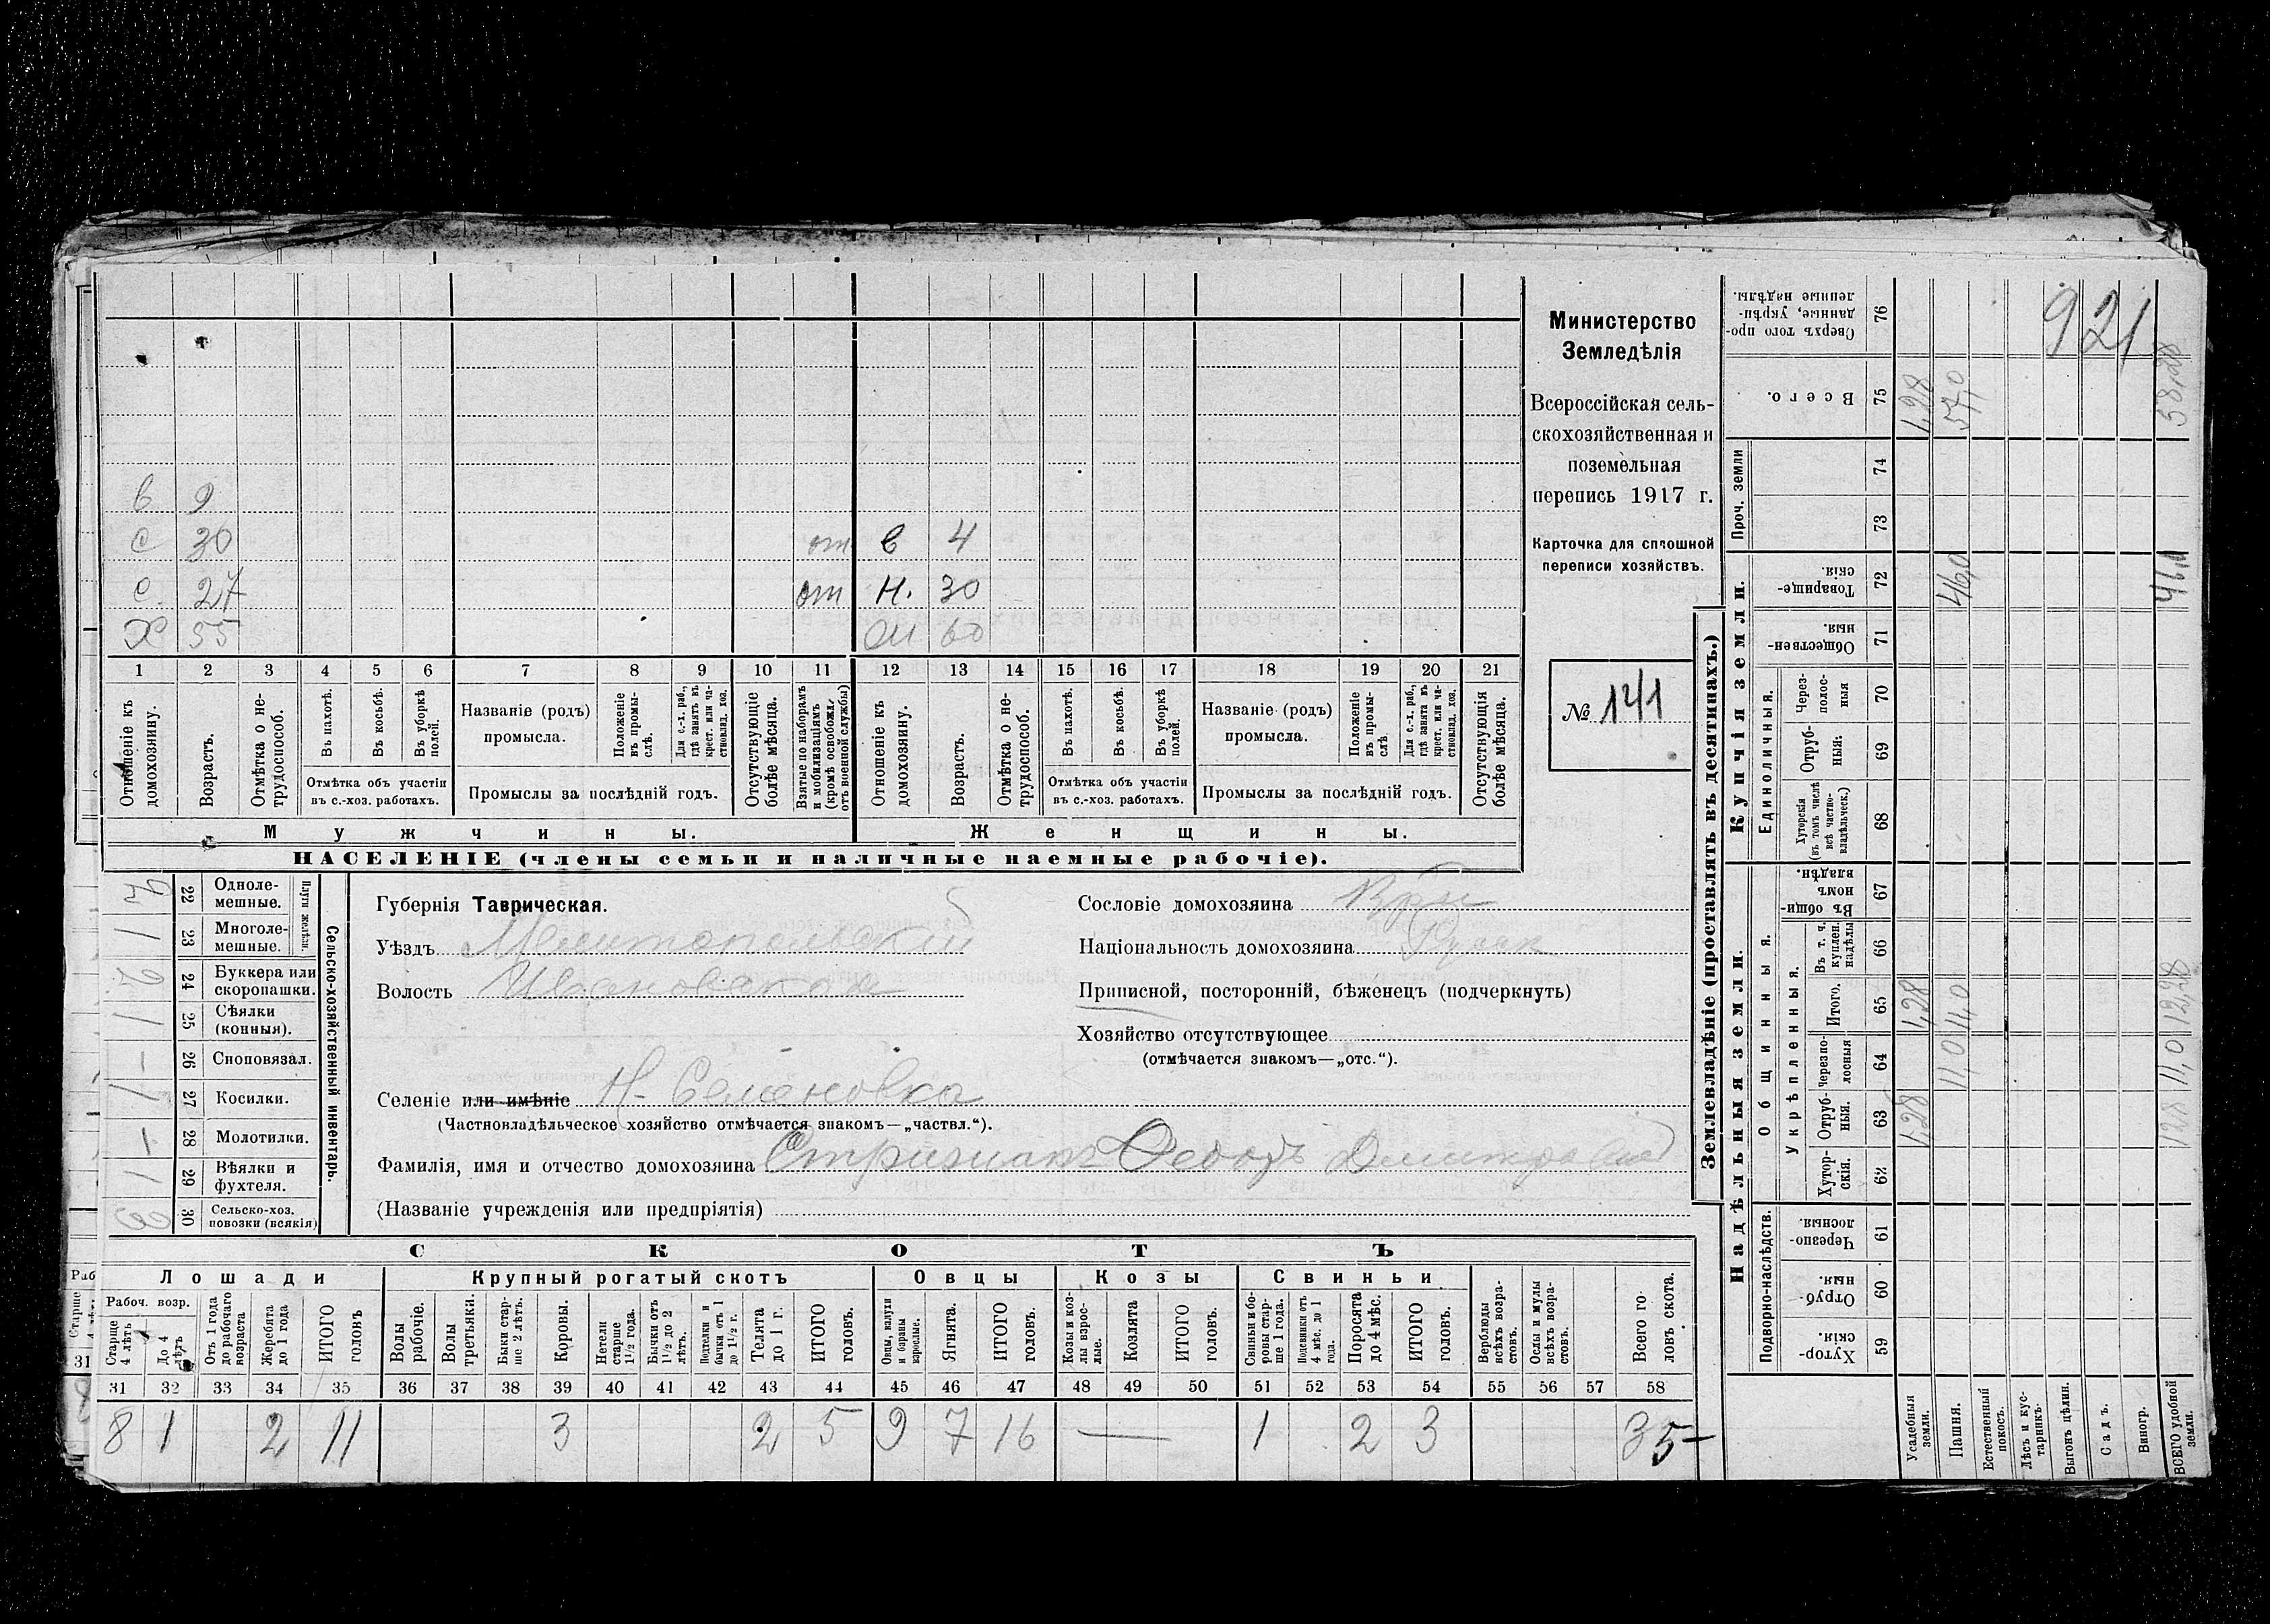 в 9
с 30 от в 4
с 27 от н. 30
Х 55 60
1 2 3 4 5 6 7 8 9 10 11 12 13 14 15 16 17 18 19 20 21
Отношеніе къ домохозяину.
Возрастъ.
Отмѣтка о не-трудоспособ.
Въ пахотѣ.
Въ косьбѣ.
Въ уборкѣ полей.
Отмѣтка объ участіи
въ с.-хоз. работахъ.
Названіе (родъ)
промысла.
Положеніе въ промы-слѣ.
Для с.-х. раб., гдѣ занятъ въ крест. или ча-стновлад. хоз.
Промыслы за послѣдній годъ.
Отсутствующіе болѣе мѣсяца.
Взятые по наборамъ и мобилизаціямъ (кромѣ освобожд. отъ военной службы)
Отношеніе къ домохозяину.
Возрастъ.
Отмѣтка о не-трудоспособ.
Въ пахотѣ.
Въ косьбѣ.
Въ уборкѣ полей.
Отмѣтка объ участіи
въ с.-хоз. работахъ.
Названіе (родъ)
промысла.
Положеніе въ промы-слѣ
Для с.-х. раб., гдѣ занята въ крест. или ча-стновлад. хоз.
Промыслы за послѣдній годъ.
Отсутствующія болѣе мѣсяца.
Мужчины. Женщины.
НАСЕЛЕНІЕ (члены семьи и наличные наемные рабочіе).
Министерство
Земледѣлія
Всероссійская сель-
скохозяйственная и
поземельная
перепись 1917 г.
Карточка для сплошной
переписи хозяйствъ.
№ 141
Сельско-хозяйственный инвентарь.
Плуги желѣзн.
22 Одноле-мешные.
1 23 Многоле-мешные.
2 24 Буккера или скоропашки.
1 25 Сѣялки (конныя).
- 26 Сноповязал.
1 27 Косилки.
28 Молотилки.
1 29 Вѣялки и фухтеля.
30 Сельско-хоз. повозки (всякія)
Губернія Таврическая.
Уѣздъ Мелитопольскій
Волость Ивановская
Селеніе или имѣніе Н-Семеновка
(Частновладѣльческое хозяйство отмѣчается знакомъ—„частвл.“).
Фамилія, имя и отчество домохозяина Стрижакъ Федотъ Дмитровичъ
(Названіе учрежденія или предпріятія)
Сословіе домохозяина Крн
Національность домохозяина
Приписной, посторонній, бѣженецъ (подчеркнуть)
Хозяйство отсутствующее
(отмѣчается знакомъ—„отс.“).
СКОТЪ
Лошади Крупный рогатый скотъ Овцы Козы Свиньи
Рабоч. возр.
Старше 4 лѣтъ
До 4 лѣтъ
Отъ 1 года до рабочаго возраста
Жеребята до 1 года
ИТОГО головъ
Волы рабочіе.
Волы третьяки.
Быки стар-ше 2 лѣтъ.
Коровы.
Нетели старше 1 1/2 года.
Бычки отъ 1 1/2 до 2 лѣтъ.
Подтелки и бычки отъ 1 до 1 1/2 г.
Телята до 1 г.
ИТОГО головъ.
Овцы, валухи и бараны взрослые.
Ягнята.
ИТОГО головъ.
Козы и коз-лы взрос-лые.
Козлята
ИТОГО головъ.
Свиньи и бо-ровы стар-ше 1 года.
Подсвинки отъ 4 мѣс. до 1 года.
Поросята до 4 мѣс.
ИТОГО головъ.
Верблюды всѣхъ возра-стовъ.
Ослы и мулы всѣхъ возра-стовъ.
Всего го-ловъ скота.
31 32 33 34 35 36 37 38 39 40 41 42 43 44 45 46 47 48 49 50 51 52 53 54 55 56 57 58
8 1 2 11 3 2 5 9 7 16 — 1 2 3 35
Землевладѣніе (проставлять въ десятинахъ.)
Надѣльныя земли. Купчія земли. Проч. земли
Подворно-наслѣдств.
Общинныя.
Укрѣпленныя.
Единоличныя.
59 Хутор-скія.
60 Отруб-ныя.
61 Черезпо-лосныя.
62 Хутор-скія.
63 Отруб-ныя. 1,28 128
64 Черезпо-лосныя 11,0 11,0
65 Итого. 1,28 11,0 12,28
66 Въ т. ч. куплен. надѣлы
67 Въ общи-номъ владѣн.
68 Хуторскія (въ томъ числѣ всѣ частно-владѣльческ.)
69 Отруб-ныя.
70 Через-полос-ныя
71 Обществен-ныя.
72 Товарище-скія. 46,0 46,0
73
74
75 Всего. 1,28 57,0 58,28
76 Сверхъ того про-данные, укрѣп-ленные надѣлы.
921
Усадебныя земли.
Пашня.
Естественный покосъ.
Лѣсъ и кус-тарникъ.
Выгонъ цѣлин.
Садъ.
Виногр.
ВСЕГО удобной земли.